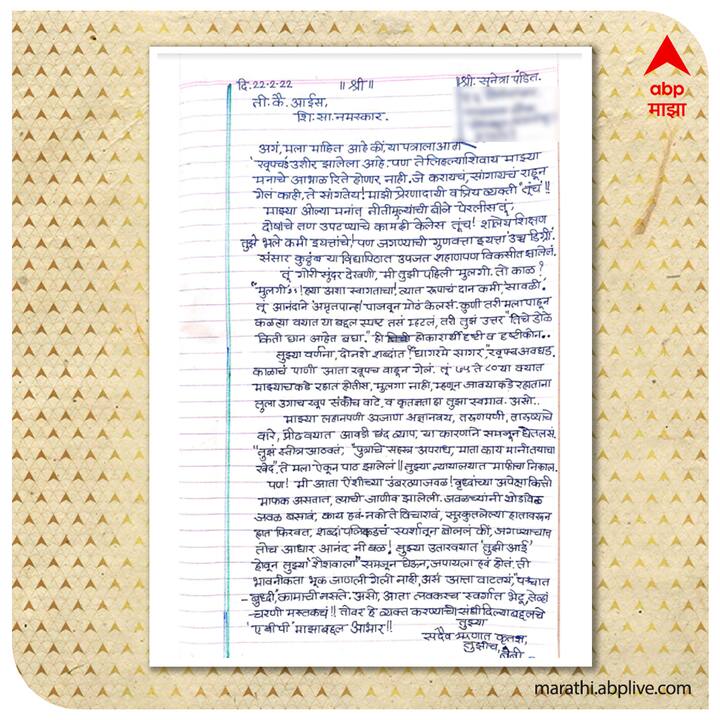 abp
माझा
दि.22-2-22 ॥ श्री ॥ श्री. सुनेत्रा पंडित.
ती. कै. आईस,
शि. सा. नमस्कार.
अगं, मला माहित आहे की, या पत्राला आता
खूपच उशीर झालेला आहे. पण ते लिहल्याशिवाय माझ्या
मनाचे आभाळ रिते होणार नाही. जे करायचं, सांगायचं राहून
गेलं काही, ते सांगतेय! माझी प्रेरणादायी व प्रिय व्यक्ती "तूच"!!
माझ्या ओल्या मनांत नीतीमूल्यांची बीजे पेरलीस तू,
दोषांचे तण उपटण्याचे कामही केलेस तूच! शालेय शिक्षण
तुझे भले कमी इयत्तांचे! पण जगण्याची गुणवत्ता इयत्ता उच्च डिग्री.
संसार कुटुंब या विद्यापिठात उपजत शहाणपण विकसीत झालेलं.
तूं गोरी सुंदर देखणी, मी तुझी पहिली मुलगी. तो काळ ?
"मुलगी ऽऽ! ह्या अशा स्वागताचा! त्यात रूपाचं दान कमी, सावळी.
तू आनंदाने अमृतपान्हा पाजवून मोठं केलसं. कुणी तरी मला पाहून
कळत्या वयात या बद्दल स्पष्ट तसं म्हटलं, तरी तुझं उत्तर "तिचे डोळे
किती छान आहेत बघा." ही होकारार्थी दृष्टी व दृष्टीकोन..
तुझ्या वर्णना, दोनशे शब्दांत ? "घागरमे सागर," खूपच अवघड.
काळाचं पाणी आता खूपच वाहून गेलं. तूं ७५ ते ८० या वयात
माझ्याचकडे रहात होतीस, मुलगा नाही, म्हणून जावयाकडे रहातांना
तुला उगाच खूप संकोच वाटे, व कृतज्ञता हा तुझा स्वभाव. असो..
माझ्या लहानपणी अजाण अज्ञानवय, तरुणपणी, तारुण्याचे
वारे, प्रौढवयात आवडी छंद व्याप, या कारणांने समजून घेतलसं.
"तुझं स्तोत्र आठवतं; "पुत्राचे सहस्त्र अपराध, माता काय मानी तयाचा
खेद". ते मला ऐकून पाठ झालेलं !! तुझ्या न्यायालयात माफीचा निकाल.
पण! मी आता ऐंशीच्या उंबरठ्याजवळ! वृध्दांच्या अपेक्षा किती
माफक असतात, त्याची जाणीव झालेली. जवळच्यांनी थोडंविळ
जवळ बसावं, काय हवं नको ते विचारावं, सुरकुतलेल्या हातावरून
हात फिरवत, शब्दां पलिकडचं स्पर्शातून बोललं की, जगण्याचाच
तोच आधार आनंद नी बळ! तुझ्या उतारवयात 'तुझी आई'
होवून तुझ्या शैशवाला" समजून घेऊन, जपायला हवं होतं. ती
भावनीकता भूक जाणली गेली नाही, असं आत्ता वाटतयं, "पश्चात
-बुध्दी, कामाची नसते. असो, आता लवकरच स्वर्गात भेटू, तेव्हां
-चरणी मस्तकचं !! तोवर हे व्यक्त करण्याची संधी दिल्याबद्दलचे
'ए बी पी' माझाबद्दल आभार !! तुझ्या
सदैव ऋणात कृतज्ञ,
तुझीच,
marathi.abplive.com